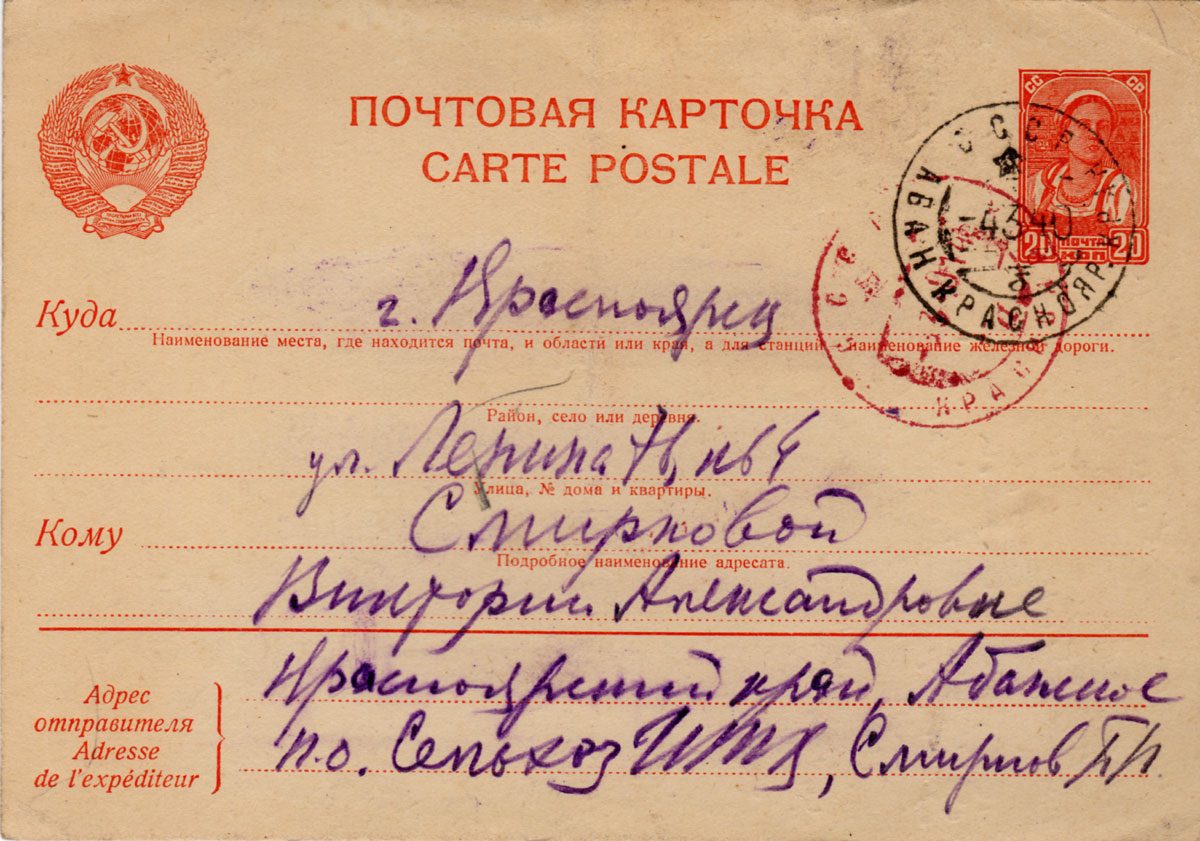 ПОЧТОВАЯ КАРТОЧКА
CARTE POSTALE
СС СР
20 ПОЧТА 20
КОП
АБАН КРАСНОЯР.
-4340
СССР
КРАС
Куда г. Красноярск
Наименование места, где находится почта, и области или края, а для станций наименование железной дороги.
Район, село или деревня.
ул. Ленина 76, кв 4
Улица, № дома и квартиры.
Кому Смирновой
Подробное наименование адресата.
Виктории Александровне
Адрес
отправителя
Adresse
de l'expéditeur
Красноярский край, Абанское
п.о. Сельхоз ИТК, Смирнов